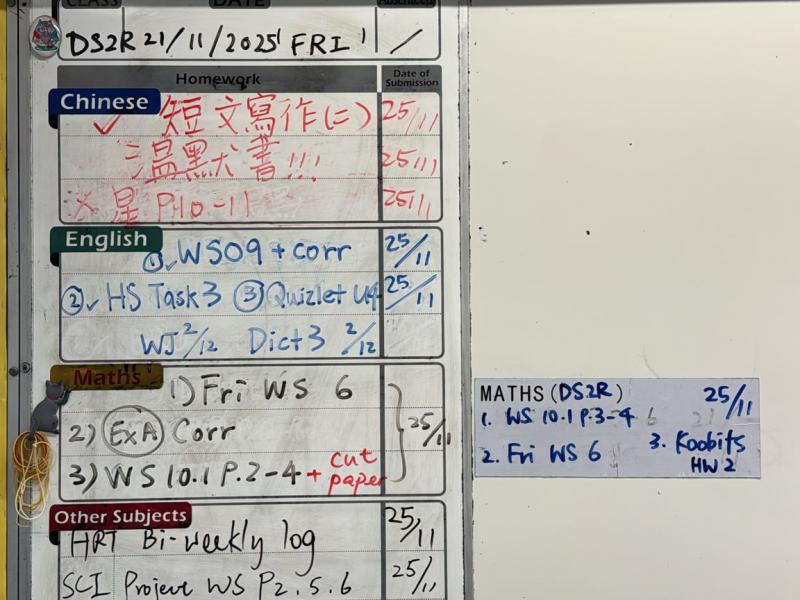 CLASS DATE Absentees
DS2R 21/11/2025 FRI /
Homework Date of Submission
Chinese
✓ 短文寫作(二) 25/11
溫默書!!! 25/11
星 P.10-11 25/11
English
①✓ WS09 + corr 25/11
②✓ HS Task 3 ③ Quizlet U4 25/11
WJ 2/12 Dict 3 2/12
Maths
1) Fri WS 6
2) ExA Corr 25/11
3) WS 10.1 P.2-4 + cut paper
Other Subjects
HRT Bi-weekly log 25/11
SCI Project WS P2.5.6 25/11
MATHS (DS2R) 25/11
1. WS 10.1 P.3-4
2. Fri WS 6 3. Koobits HW 2